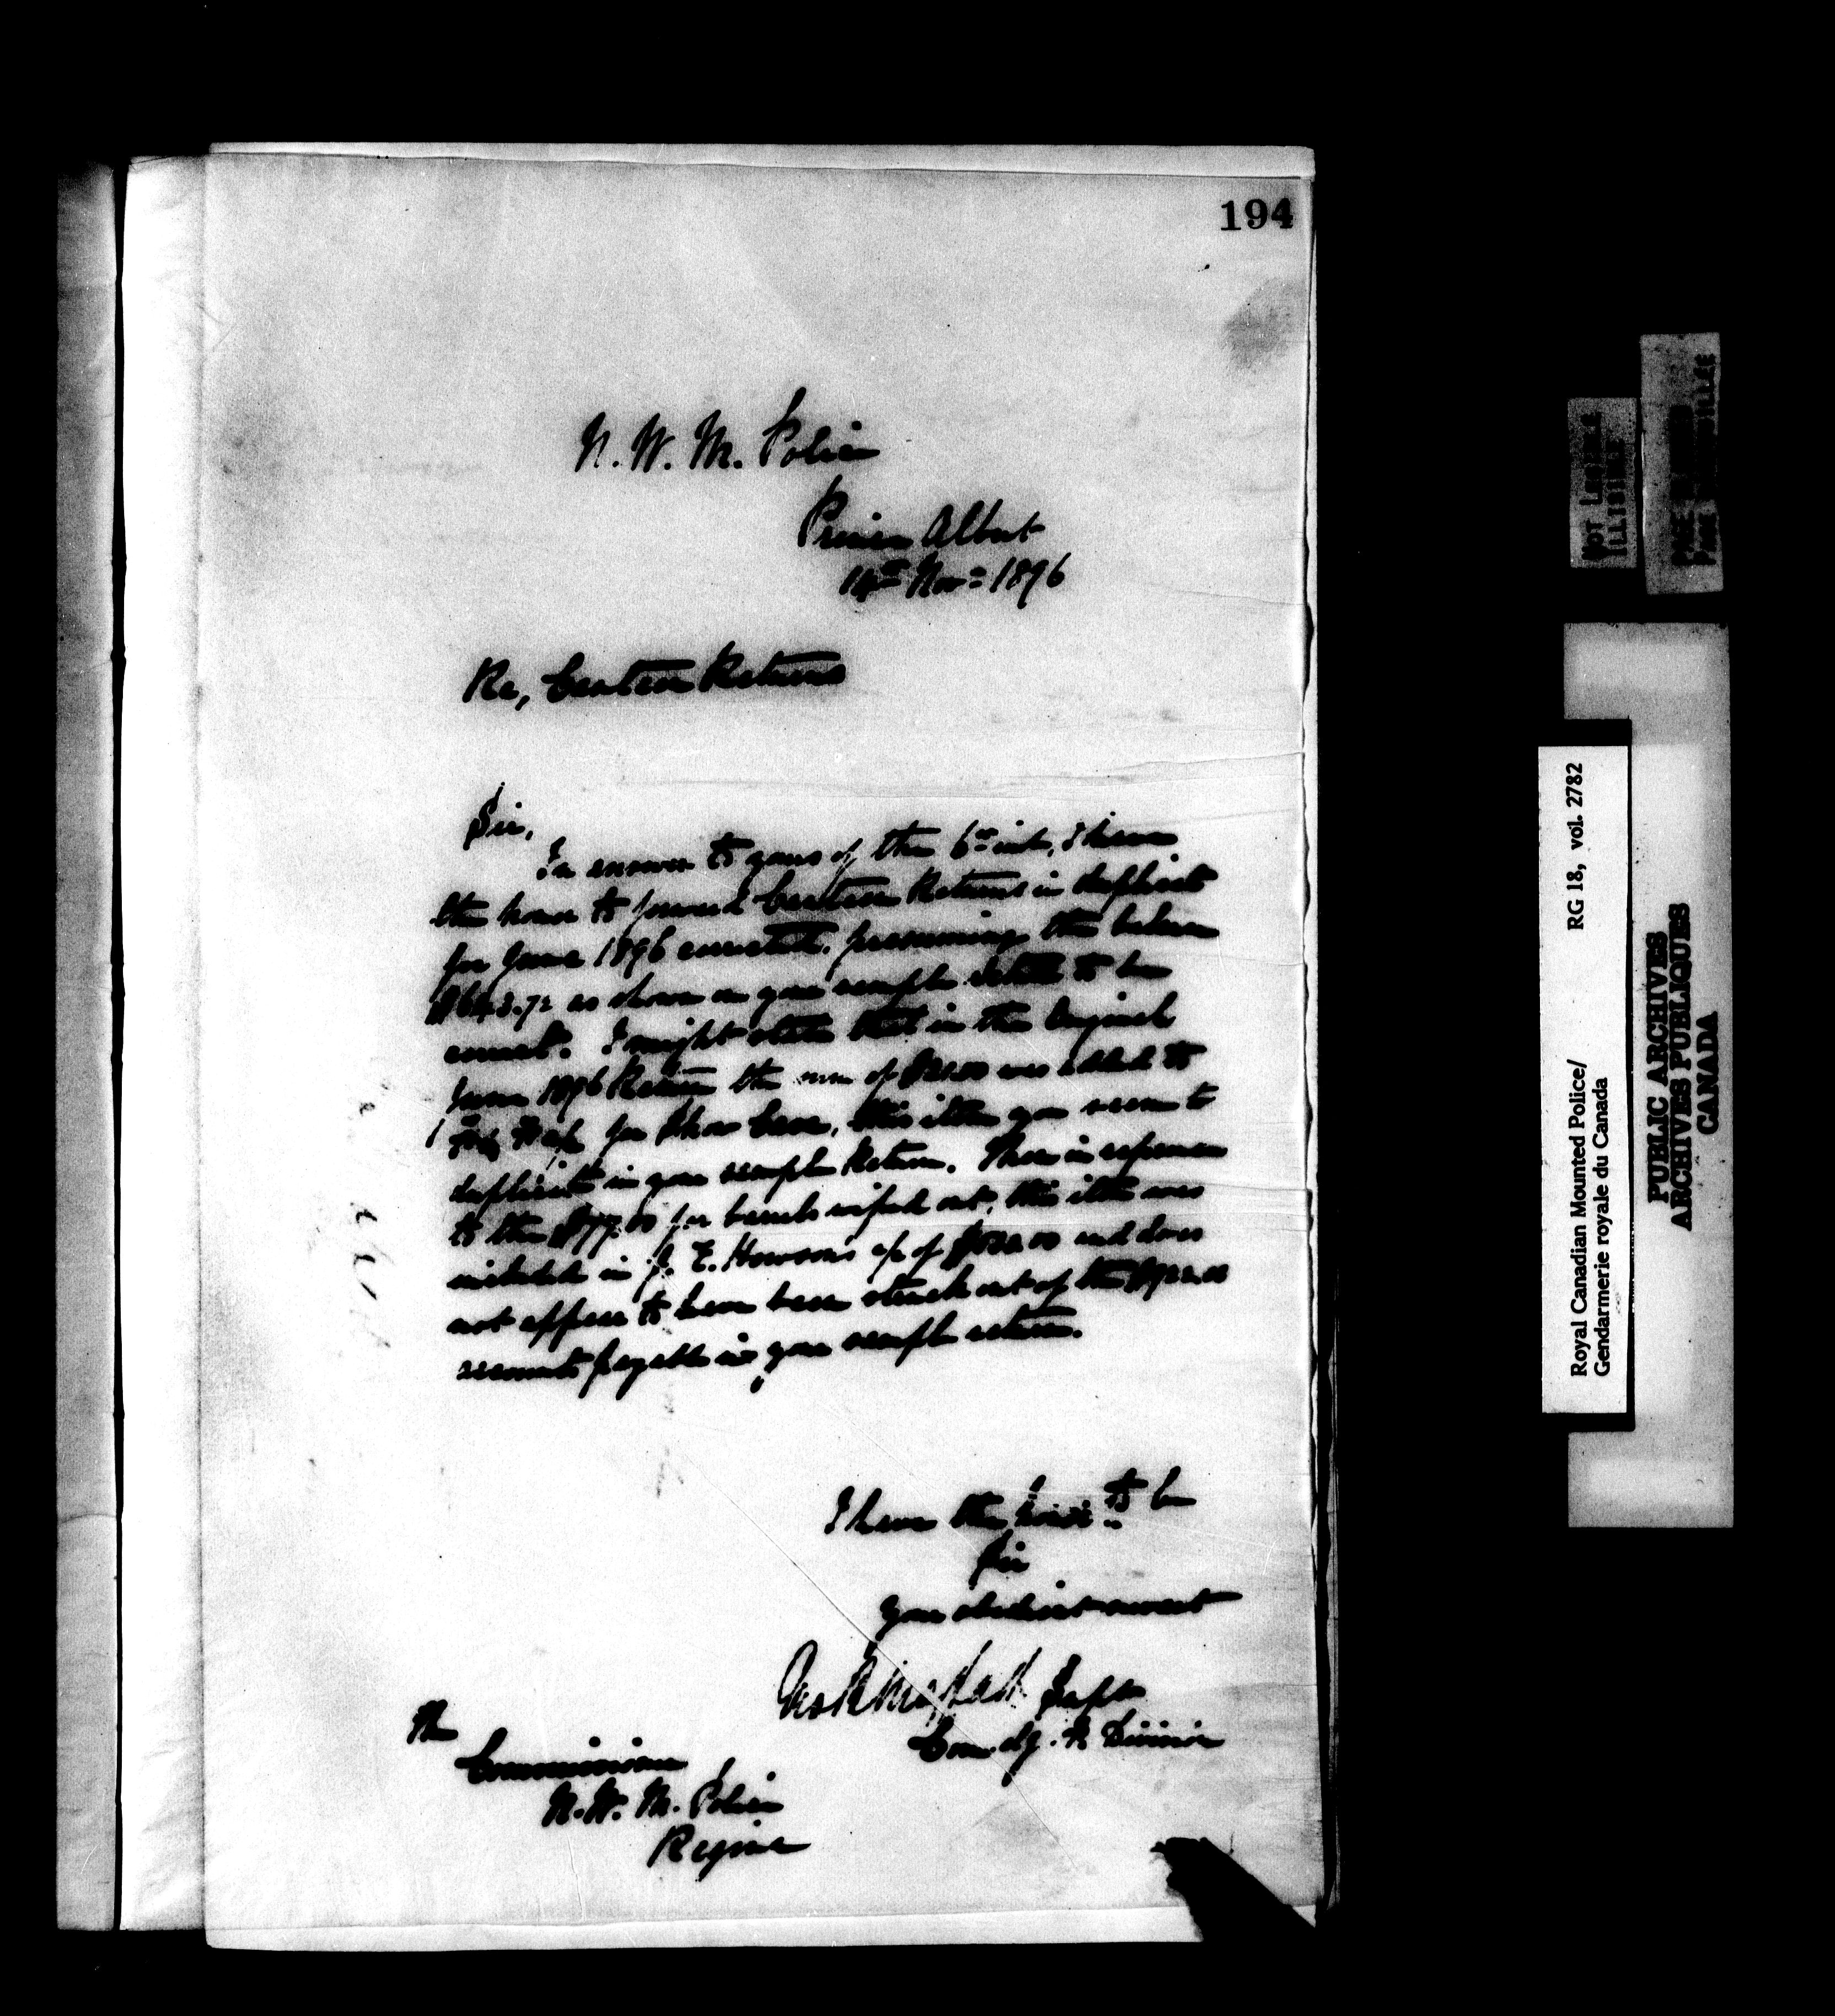 194
N. W. M. Police
Prince Albert
14th Nov= 1896
Re, Canteen Returns
Sir,
In answer to yours of the 6th inst, I have
the honor to forward Canteen Returns in duplicate
for June 1896 corrected, presuming the balance
$643.72 as shown on your sample return to be
correct. I might state that in the Original
June 1896 Return the sum of was added to
for Show Case, this item you seem to
duplicate in your sample Return. Then in reference
to the $77.00 for barrels wiped out, this item was
included in J. E. Howson's a/c of and does
not appear to have been struck out of the
accounts payable in your sample return.
I have the honor to be
Sir
Your obedient servant
Supt
Com.dg. Division
The
Commissioner
N. W. M. Police
Regina
NOT LEGIBLE
ILLISIBLE
Royal Canadian Mounted Police/ RG 18, vol. 2782
Gendarmerie royale du Canada
PUBLIC ARCHIVES
ARCHIVES PUBLIQUES
CANADA